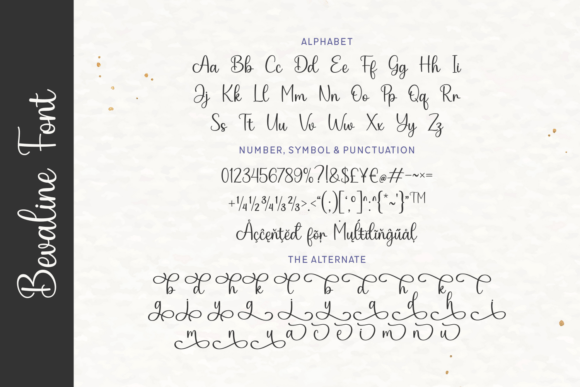 Bewaline Font
ALPHABET
Aa Bb Cc Dd Ee Ff Gg Hh Ii
Jj Kk Ll Mm Nn Oo Pp Qq Rr
Ss Tt Uu Vv Ww Xx Yy Zz
NUMBER, SYMBOL & PUNCTUATION
0123456789%?!&$£¥€@#-~×=
+¼½¾⅓⅔>.<“(;)[‘,°]^:^{*~'}”™
THE ALTERNATE
b d h k t b d h k t
g j y g j y q d h i
m n y a c e i m n u